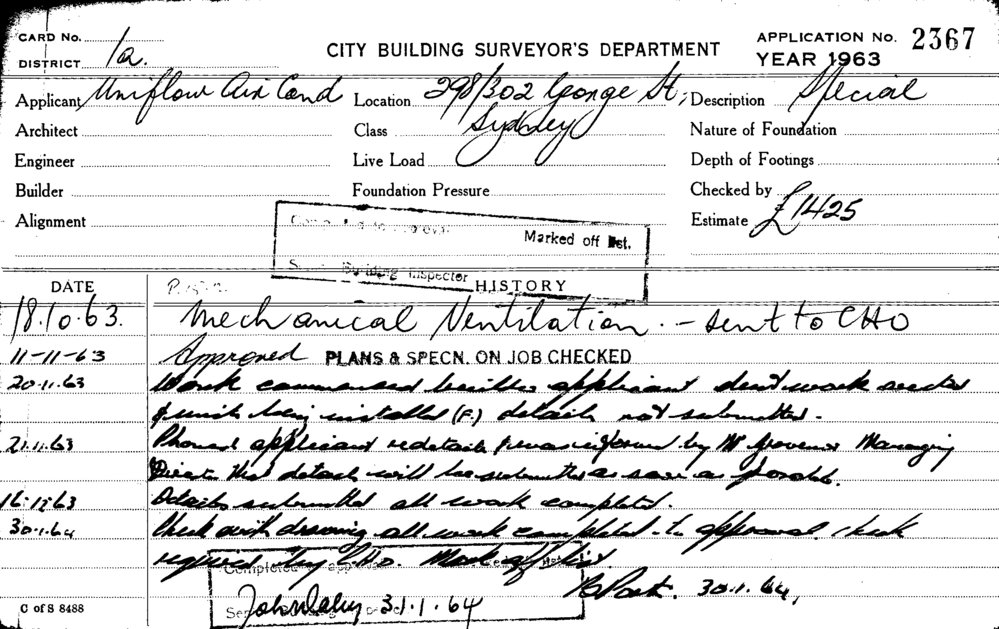 CARD No.
DISTRICT 1a.
CITY BUILDING SURVEYOR'S DEPARTMENT
APPLICATION No. 2367
YEAR 1963
Applicant Uniflow Air Cond Location 298/302 George St, Sydney Description Special
Architect Class Nature of Foundation
Engineer Live Load Depth of Footings
Builder Foundation Pressure Checked by
Alignment Estimate £1425
Marked off list.
Building Inspector
DATE HISTORY
18.10.63. Mechanical Ventilation. - sent to CHO
11-11-63 Approved PLANS & SPECN. ON JOB CHECKED
20.11.63 Work commenced applicant work
& units being installed (F.) details not submitted.
21.11.63 Phoned applicant re details & was informed by Mr Managing
Director that details will be submitted as soon as possible.
16.12.63 Details submitted all work completed.
30.1.64 Check with drawing all work completed to approval check
required by CHO. Mark off list.
Completed approval
B Park. 30.1.64,
John Daley 31.1.64
C of S 8488